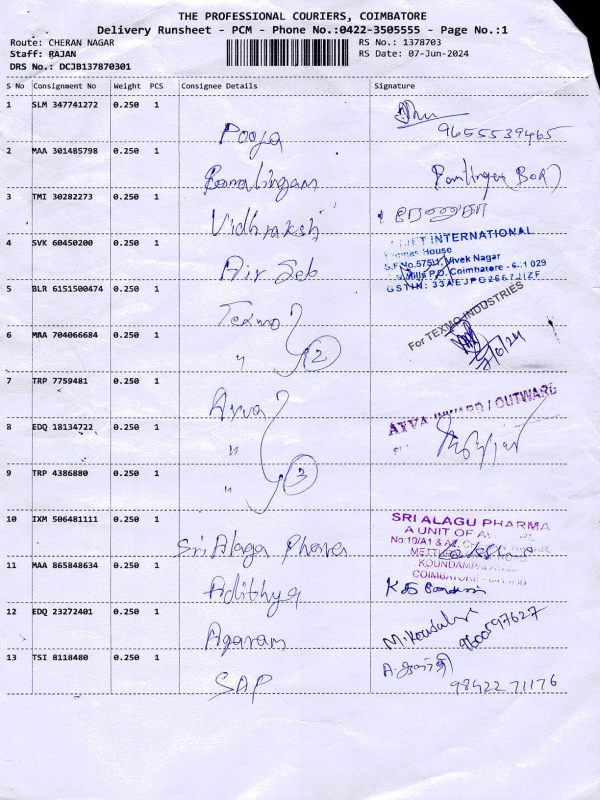 THE PROFESSIONAL COURIERS, COIMBATORE
Delivery Runsheet - PCM - Phone No.:0422-3505555 - Page No.:1
Route: CHERAN NAGAR RS No.: 1378703
Staff: RAJAN RS Date: 07-Jun-2024
DRS No.: DCJB137870301
S No Consignment No Weight PCS Consignee Details Signature
1 SLM 347741272 0.250 1 Pooja
9655539465
2 MAA 301485798 0.250 1 Ramalingam
3 TMI 30282273 0.250 1 Vidhrakshi ரேணுகா
4 SVK 60450200 0.250 1 Air Seb
JET INTERNATIONAL
House
S.F.No.575/1, Vivek Nagar
Mills P.O. Coimbatore - 029
GSTIN: 33AEJPG
5 BLR 6151500474 0.250 1 Texmo
For TEXMO INDUSTRIES
6 MAA 704066684 0.250 1 " 2
7/6/24
7 TRP 7759481 0.250 1 Avva
AVVA INWARD / OUTWARD
8 EDQ 18134722 0.250 1 "
9 TRP 4386880 0.250 1 " 3
10 IXM 506481111 0.250 1 Sri Alaga Pharma
SRI ALAGU PHARMA
A UNIT OF
No:10/A1 &
KOUNDAMPALAYAM
COIMBATORE
11 MAA 865848634 0.250 1 Adithya
12 EDQ 23272401 0.250 1 Agaram
M. Kousalya
9600597627
13 TSI 8118480 0.250 1 SAP
98422 71176